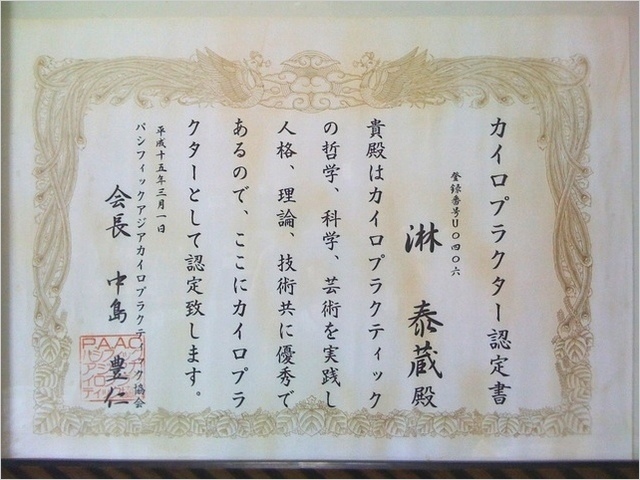 カイロプラクター認定書
登録番号U〇四〇六
淋 泰蔵殿
貴殿はカイロプラクティック
の哲学、科学、芸術を実践し
人格、理論、技術共に優秀で
あるので、ここにカイロプラ
クターとして認定致します。
平成十五年三月一日
パシフィックアジアカイロプラクティック協会
会長 中島 豊仁
PAAC